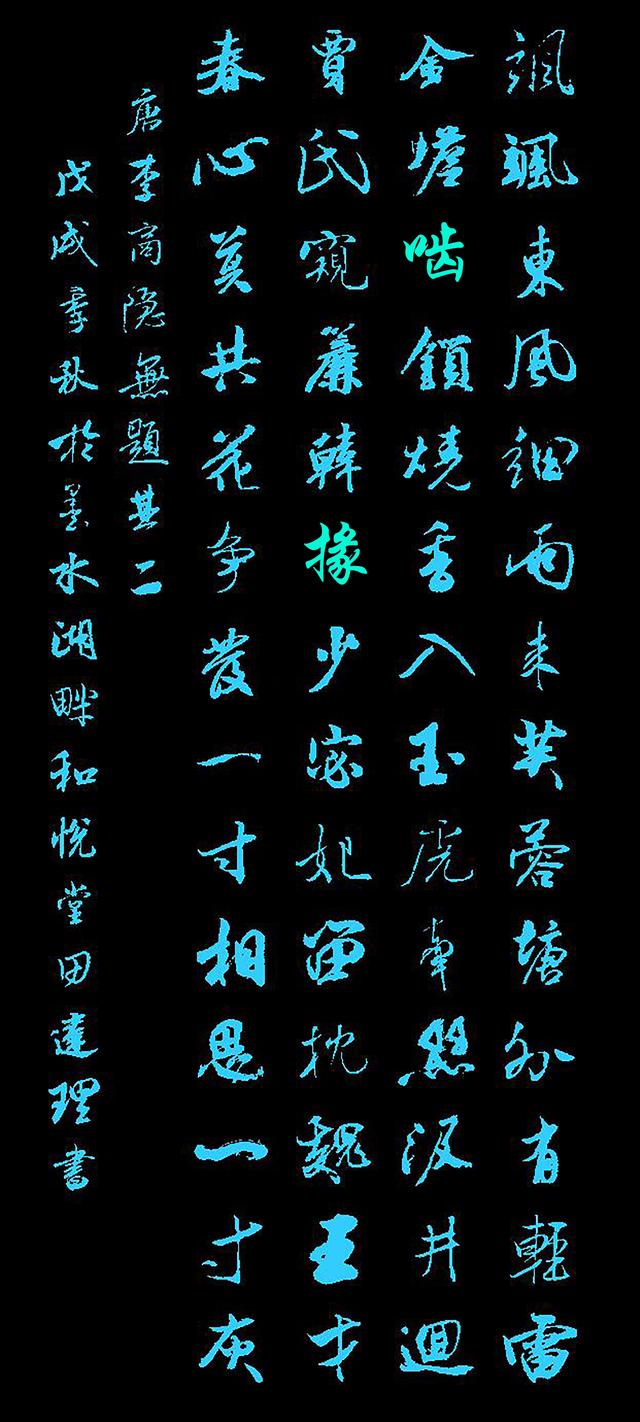 颯颯東風細雨来芙蓉塘外有輕雷
金蟾啮鎖燒香入玉虎牽絲汲井迴
賈氏窺簾韓掾少宓妃留枕魏王才
春心莫共花争發一寸相思一寸灰
唐李商隐無題其二
戊戌季秋於墨水湖畔和悦堂田達理書